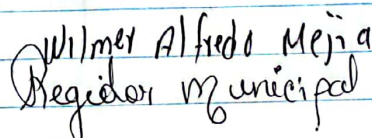 Wilmer Alfredo Mejia
Regidor Municipal